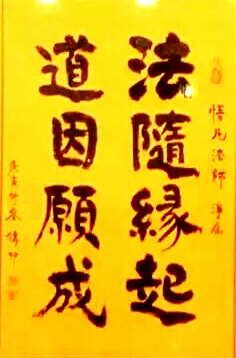 悟凡法師 淨屬
法隨緣起
道因願成
庚寅仲春 傳印